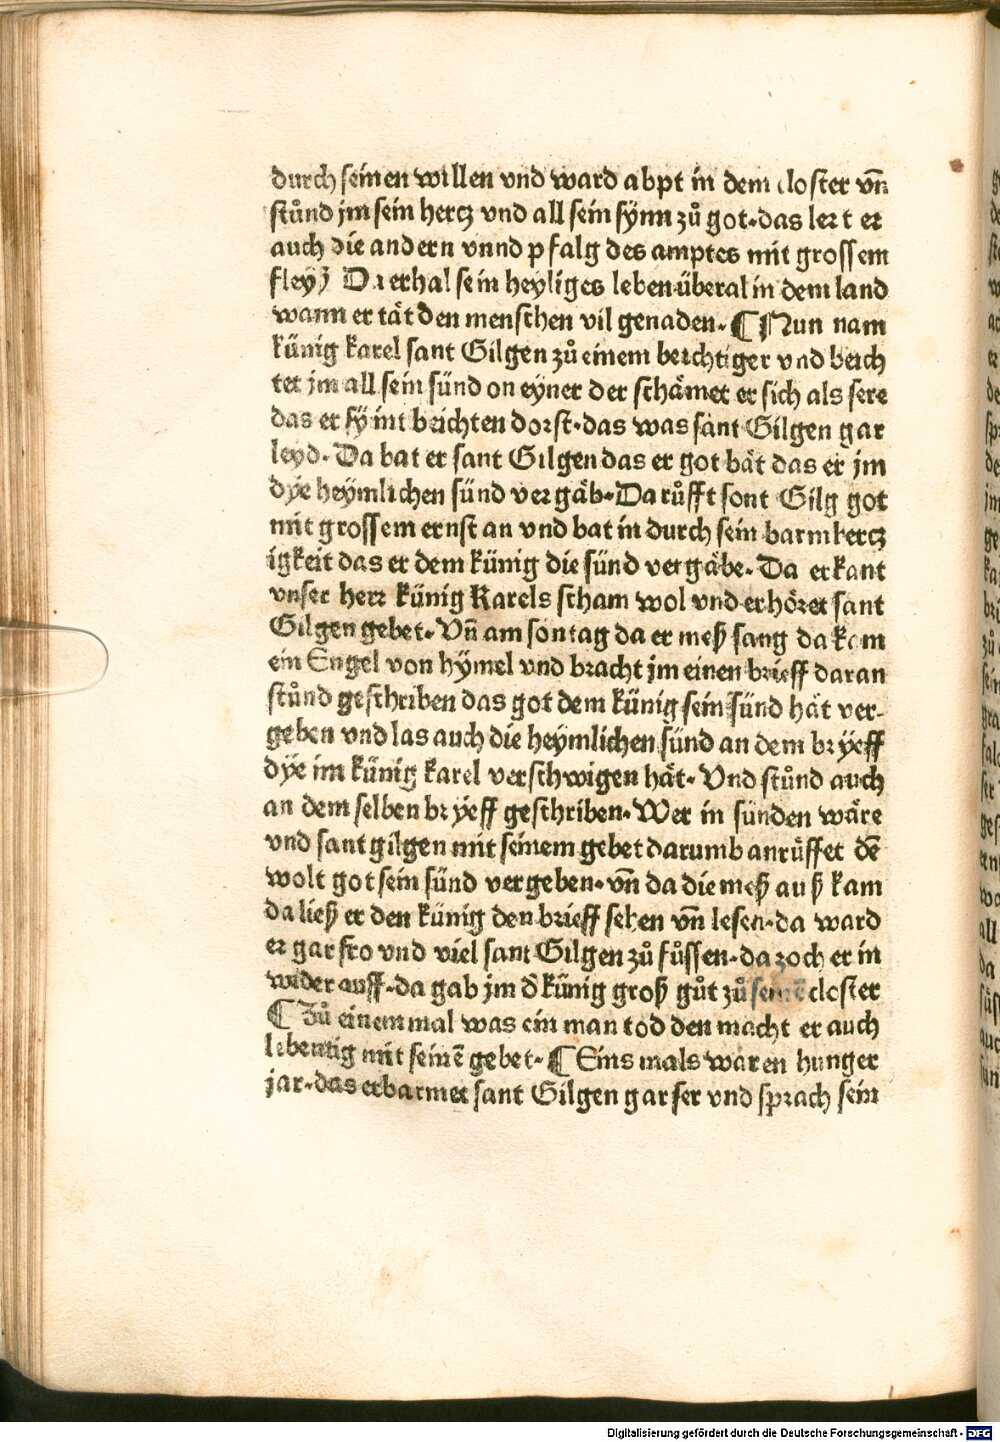 durch seinen willen vnd ward abpt in dem closter vn̄
stůnd jm sein hercz vnd all sein synn zů got·das lert er
auch die andern vnnd pfalg des amptes mit grossem
fleyß Da erhal sein heyliges leben überal in dem land
wann er tät den menschen vil genaden·¶ Nun nam
künig karel sant Gilgen zů einem beichtiger vnd beich
tet jm all sein sünd on eyner der schämet er sich als sere
das er sÿ nit beichten dorst·das was sant Gilgen gar
leyd·Da bat er sant Gilgen das er got bät das er jm
dÿe heÿmlichen sünd vergäb·Da růfft sant Gilg got
mit grossem ernst an vnd bat in durch sein barmhercz
igkeit das er dem künig die sünd vergäbe·Da erkant
vnser herr künig Karels scham wol vnd erhöret sant
Gilgen gebet·Vn̄ am sontag da er meß sang da kam
ein Engel von hÿmel vnd bracht jm einen brieff daran
stůnd geschriben das got dem künig sein sünd hät ver-
geben vnd las auch die heÿmlichen sünd an dem brÿeff
dÿe im künig karel verschwigen hät·Vnd stůnd auch
an dem selben brÿeff geschriben·Wer in sünden wäre
vnd sant gilgen mit seinem gebet darumb anrüffet dē
wolt got sein sünd vergeben·vn̄ da die meß auß kam
da ließ er den künig den brieff sehen vn̄ lesen·da ward
er gar fro vnd viel sant Gilgen zů fůssen·da zoch er in
wider auff·da gab jm d̄ künig groß gůt zů seinē closter
¶ Zů einem mal was ein man tod den macht er auch
lebentig mit seinē gebet·¶ Eins mals waren hunger
jar·das erbarmet sant Gilgen gar ser vnd sprach sein
Digitalisierung gefördert durch die Deutsche Forschungsgemeinschaft - DFG